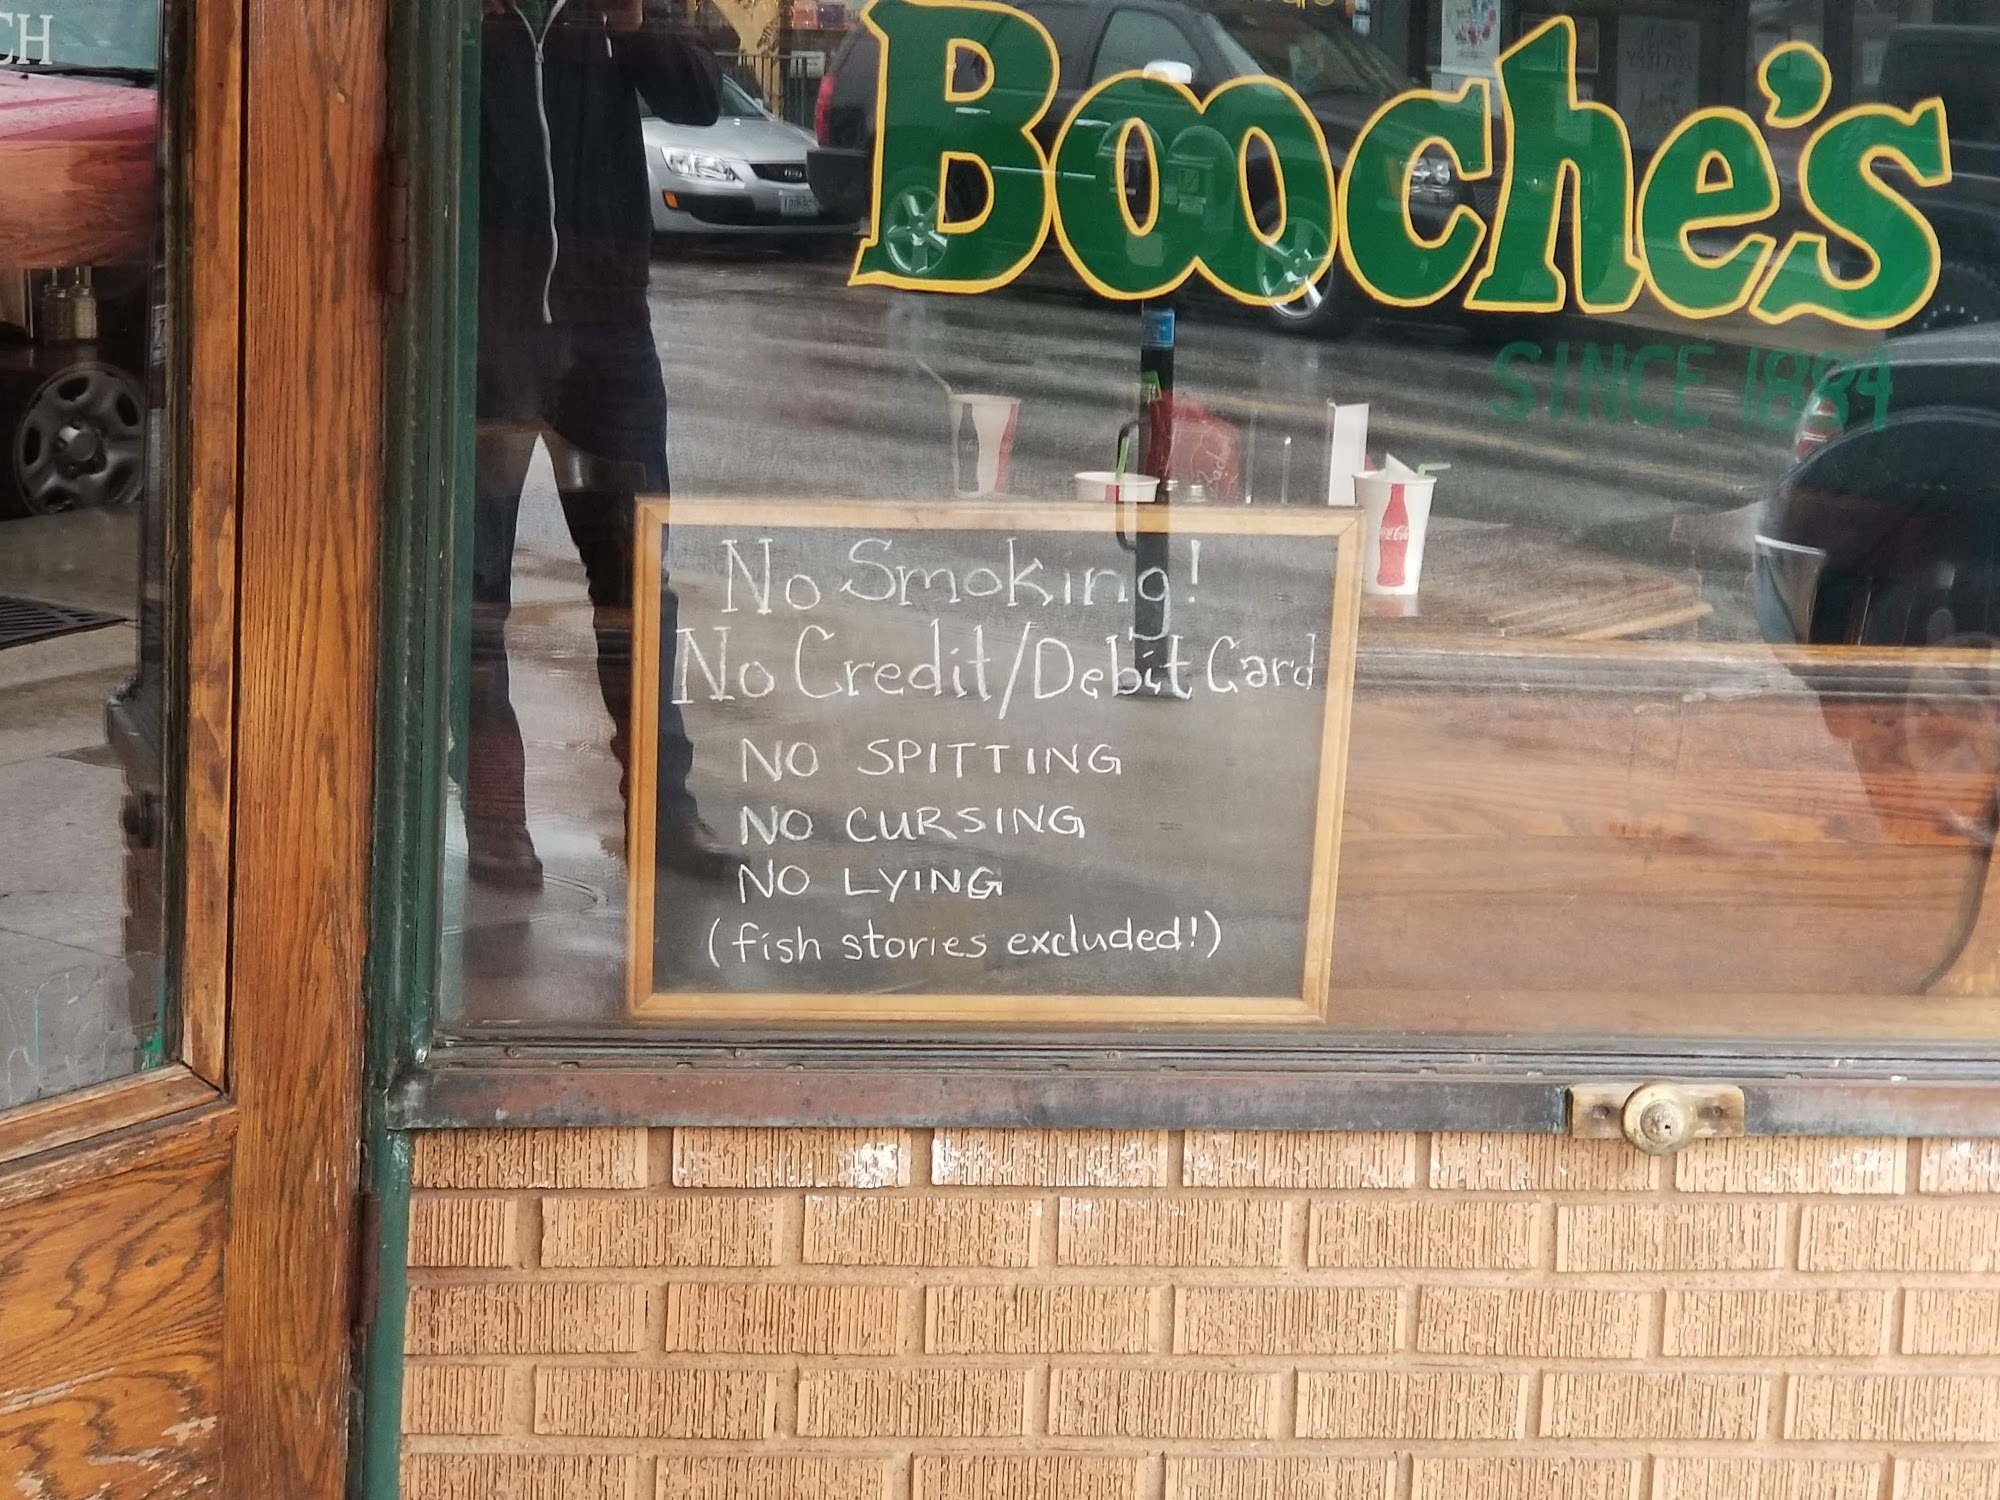 CH
Booche's
SINCE 1884
No Smoking!
No Credit/Debit Card
NO SPITTING
NO CURSING
NO LYING
(fish stories excluded!)
Coca-Cola
KIA